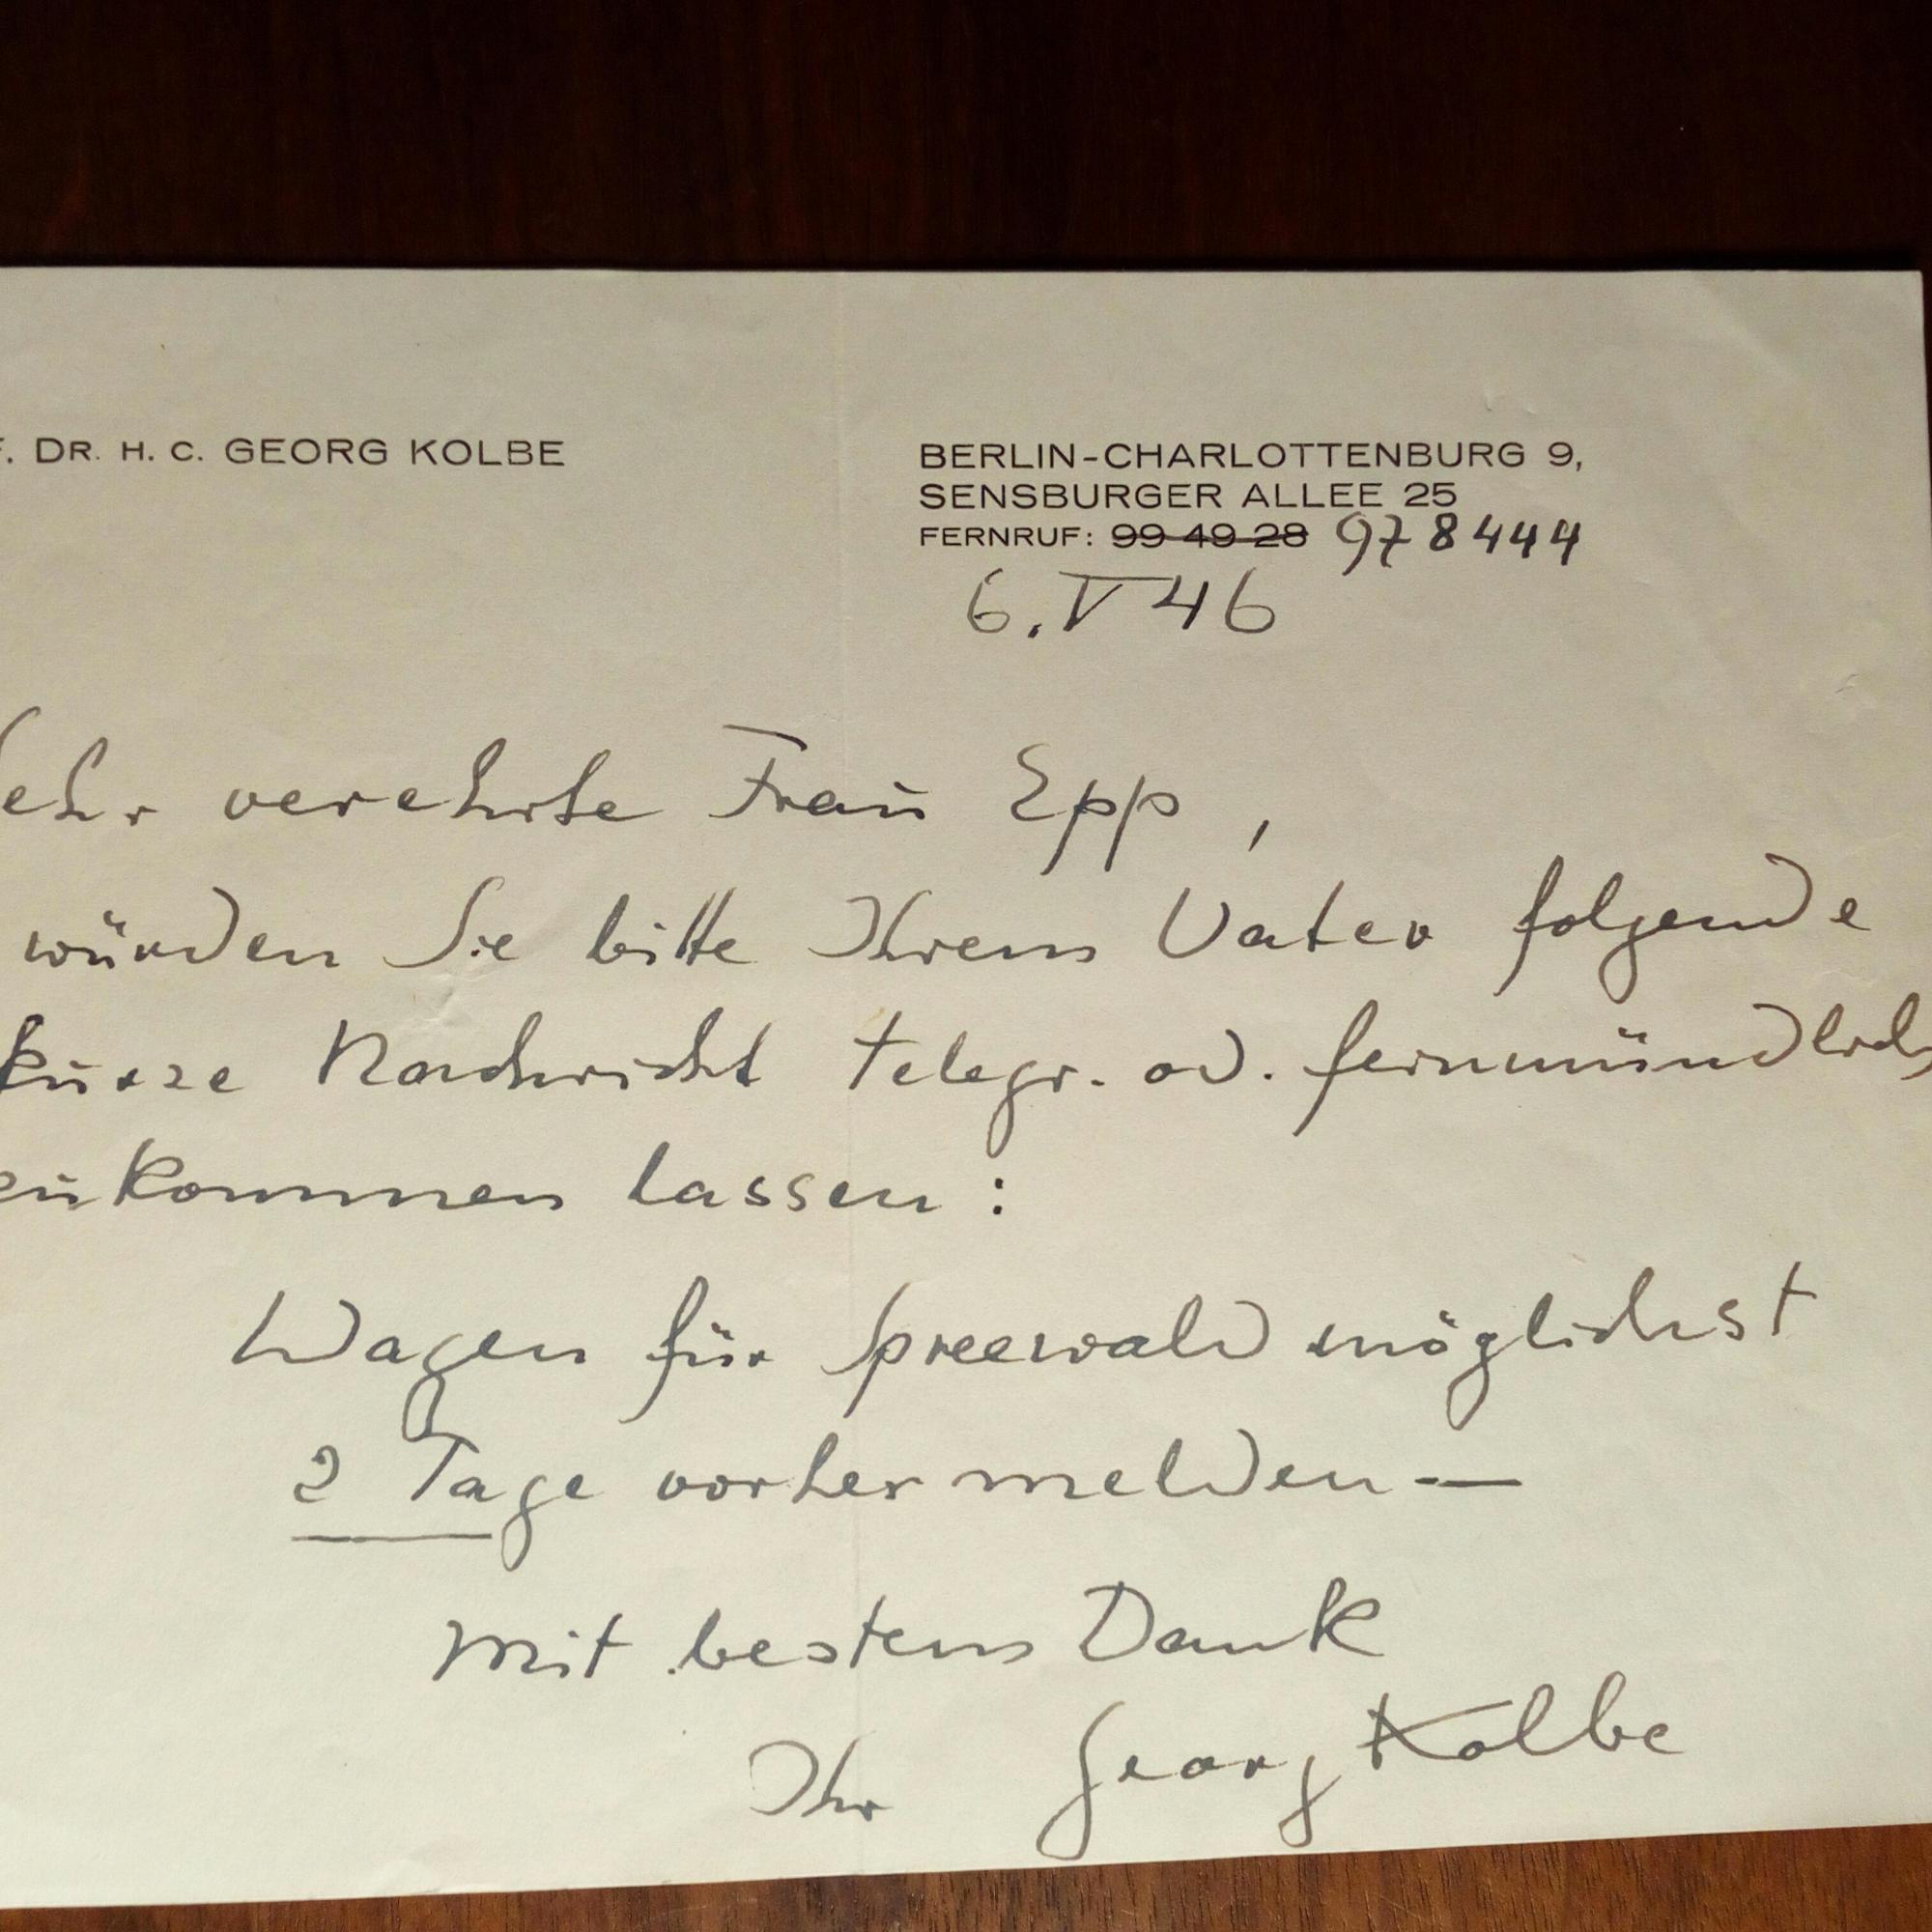 F. DR. H. C. GEORG KOLBE
BERLIN-CHARLOTTENBURG 9,
SENSBURGER ALLEE 25
FERNRUF: 99 49 28 978444
6. V 46
Sehr verehrte Frau Epp,
würden Sie bitte Ihrem Vater folgende
kurze Nachricht telegr. od. fernmündlich
zukommen lassen:
Wagen für Spreewald möglichst
2 Tage vorher melden —
Mit bestem Dank
Ihr Georg Kolbe